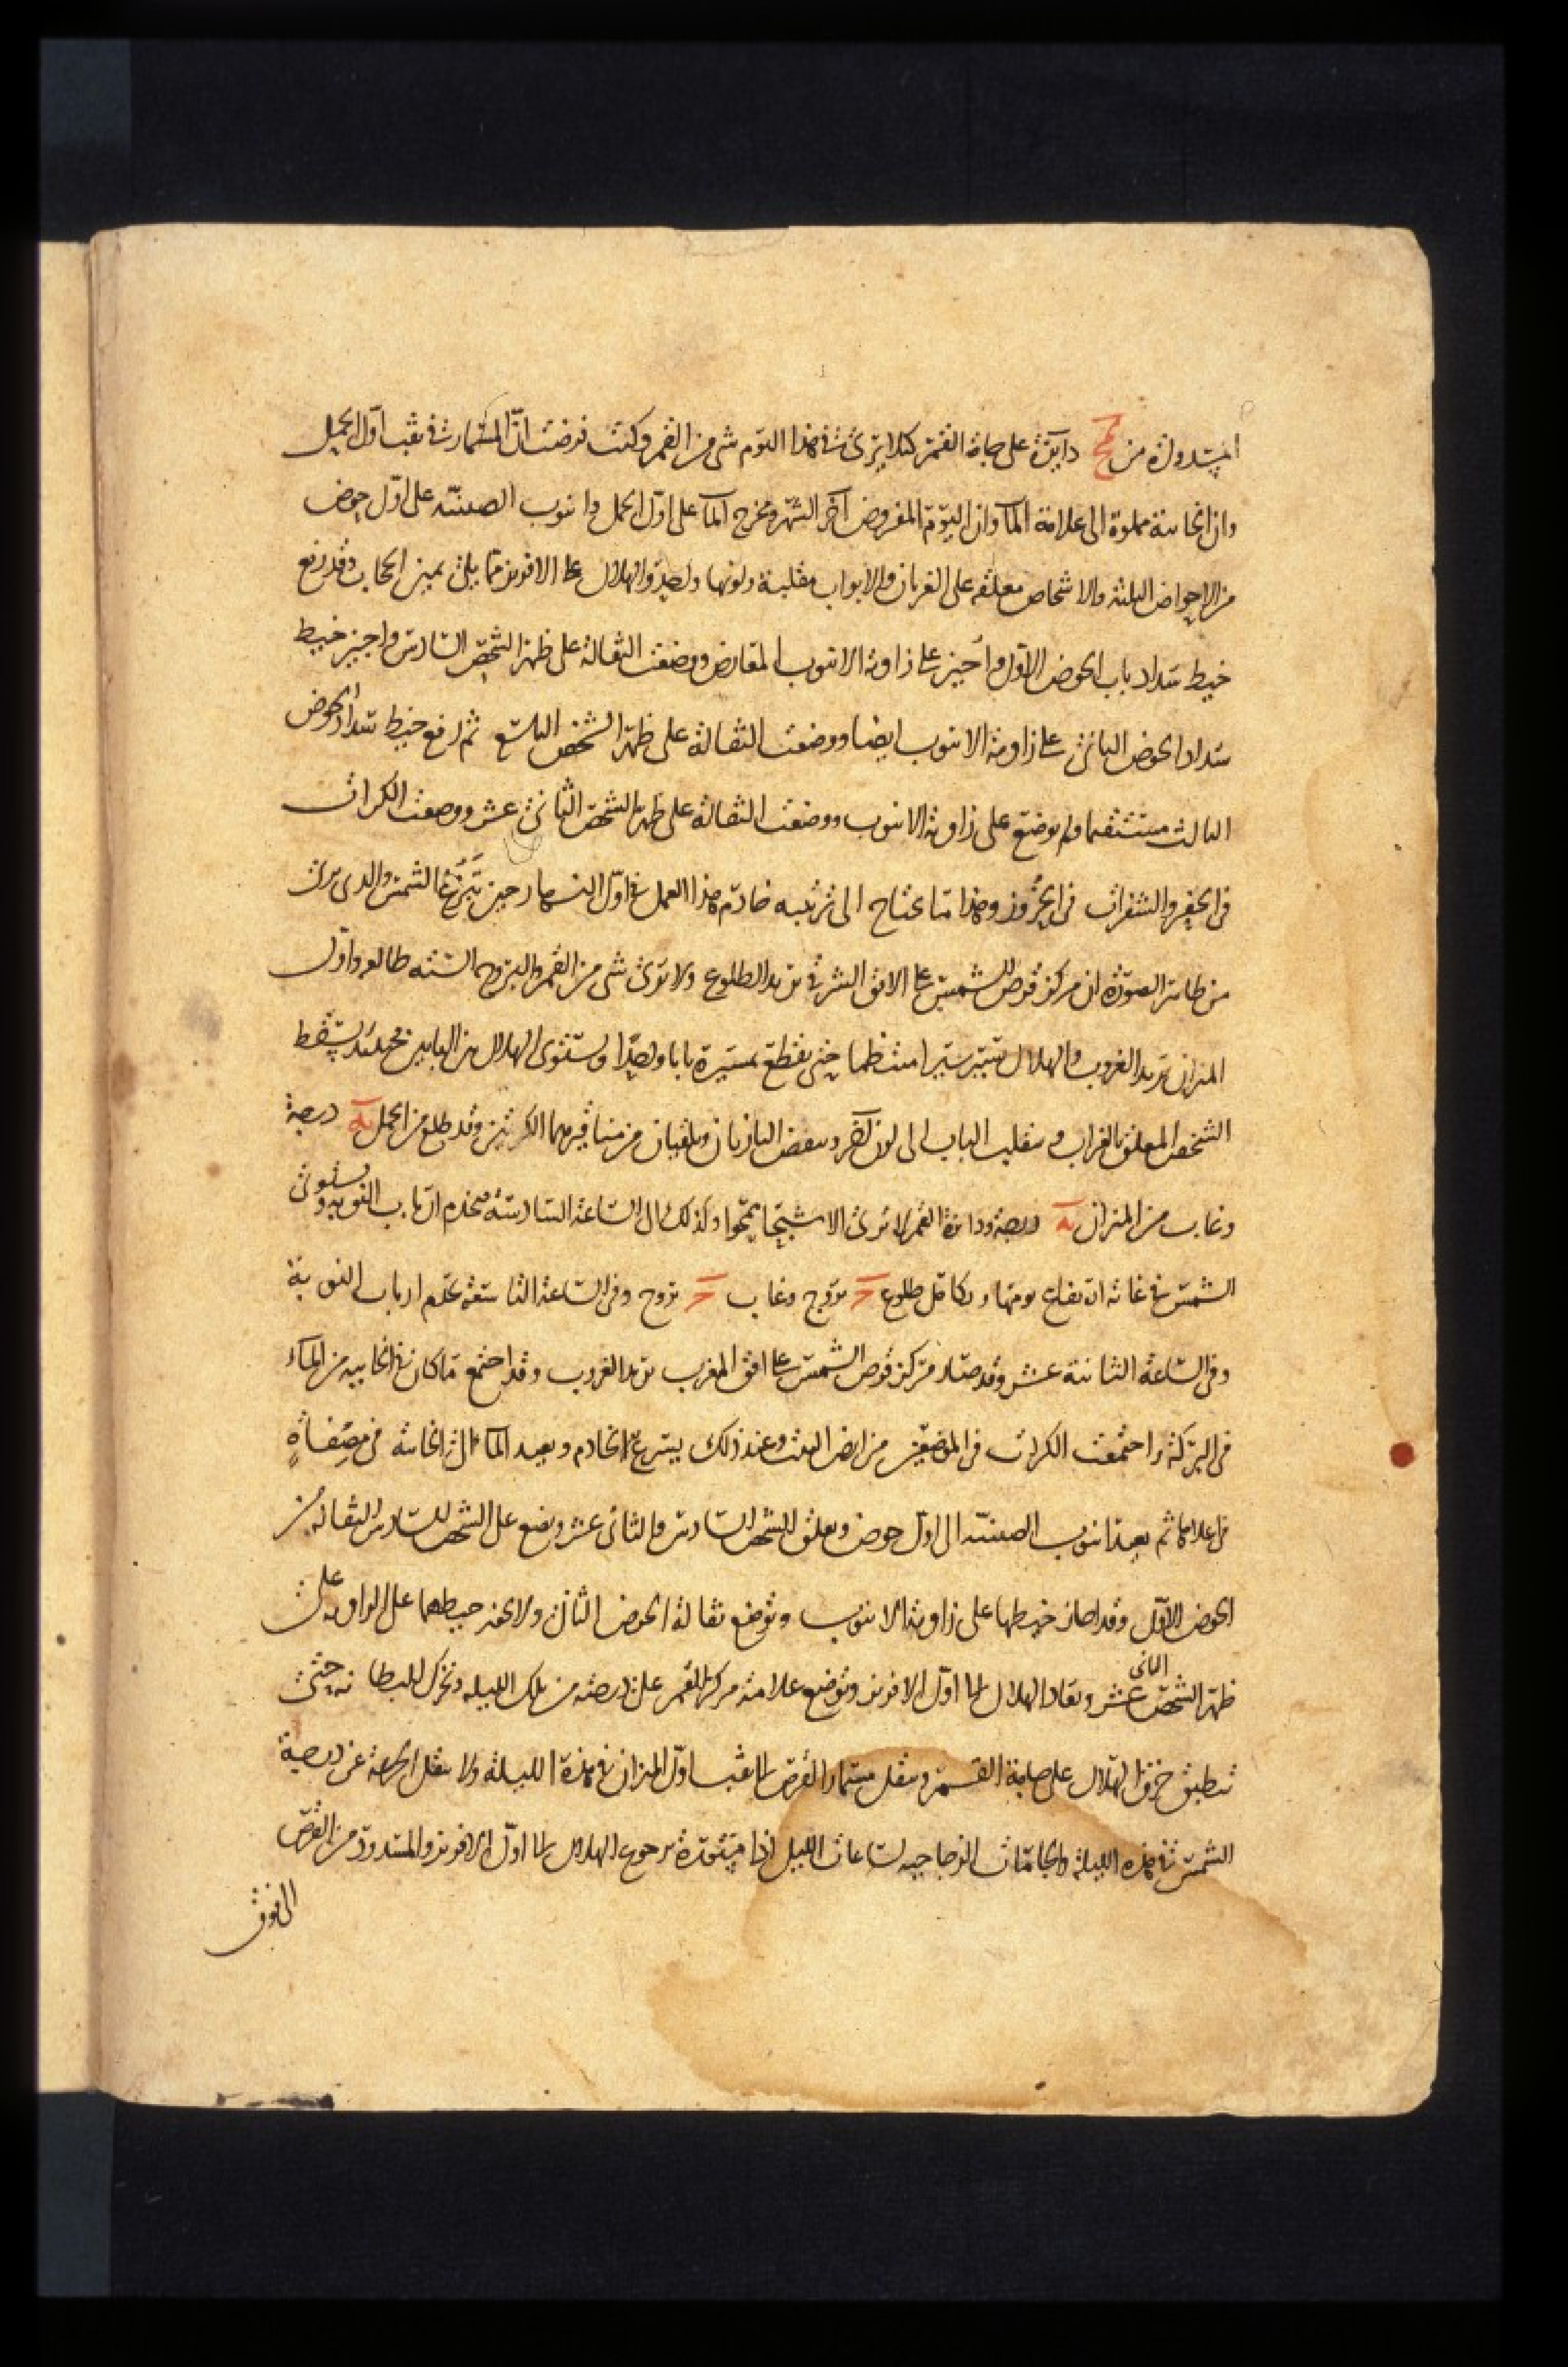 المستدولة من دايرة على جامة القمر كيلا يرى في هذا اليوم شى من القمر وكنت فرضت ان المسمار في ثقب اول الحمل
وان الخابية مملوة الى علامة الماء وان اليوم المفروض آخر الشهر ومخرج الماء على اول الحمل وانبوب الصينية على اول حوض
من الاحواض الثلثة والاشخاص معلقة على الغربان والابواب مقلبة ولونها واحد والهلال على الافريز مما يلى يمين الحجاب وقد رفع
خيط سداد باب الحوض الاول واجيز على زاوية الانبوب المعارض ووضعت الثقالة على ظهر الشخص السادس واجيز خيط
سداد الحوض الثانى على زاوية الانبوب ايضا ووضعت الثقالة على ظهر الشخص التاسع ثم رفع خيط سداد الحوض
الثالث مستقيما ولم يوضع على زاوية الانبوب ووضعت الثقالة على ظهر الشخص الثانى عشر ووضعت الكرات
فى الحفر والشفرات فى الحزوز وهذا مما يحتاج الى ترتيبه خادم هذا العمل فى اول النهار حين تبزغ الشمس والذى يرى
من ظاهر الصورة ان مركز قرص الشمس على الافق الشرقى تريد الطلوع ولا ترى شى من القمر والبروج الستة طالعه واول
الميزان تريد الغروب والهلال يسير سيرا منتظما حتى يقطع بمسيره بابا واحدا ويستوى الهلال بين البابين فحينئذ يسقط
الشخص المعلق بالغراب وينقلب الباب الى لون آخر وينقض البازيان ويلقيان من مناقيرهما الكرتين وقد طلع من الحمل يه درجة
وغاب من الميزان يه درجة ودائرة القمر لا ترى الا شبحا ممحوا وكذلك الى الساعة السادسة فتخدم ارباب النوبة وتستوى
الشمس فى غاية ارتفاع يومها وبكامل طلوع ج بروج وغاب ج بروج وفى الساعة التاسعة تخدم ارباب النوبة
وفى الساعة الثانية عشر وقد صار مركز قرص الشمس على افق المغرب تريد الغروب وقد اجتمع ما كان فى الخابيه من الماء
فى البركة واجتمعت الكرات فى الموضعين من ارض البيت وعند ذلك يسرع الخادم ويعيد الماء الى الخابية فى مصفاة
من اعلاها ثم يعيد انبوب الصينية الى اول حوض ويعلق الشخص السادس والثانى عشر ويضع على الشخص السادس الثقاله من
الحوض الاول وقد اجاز خيطها على زاوية الانبوب وتوضع ثقالة الحوض الثانى ولا يجيز خيطها على الزاوية على
ظهر الشخص الثانى عشر ويعاد الهلال الى اول الافريز وتوضع علامة مركز القمر على درجته من تلك الليله وتحرك البطانه حتى
تنطبق خرق الهلال على جامة القمر وينقل مسمار القرص الى ثقب اول الميزان فى هذه الليلة ولا ينقل الحركة عن درجة
الشمس فى هذه الليلة والجامات الزجاجيه لساعات الليل اذا مستورة برجوع الهلال الى اول الافريز والمستدوة من القرص
الى فوق